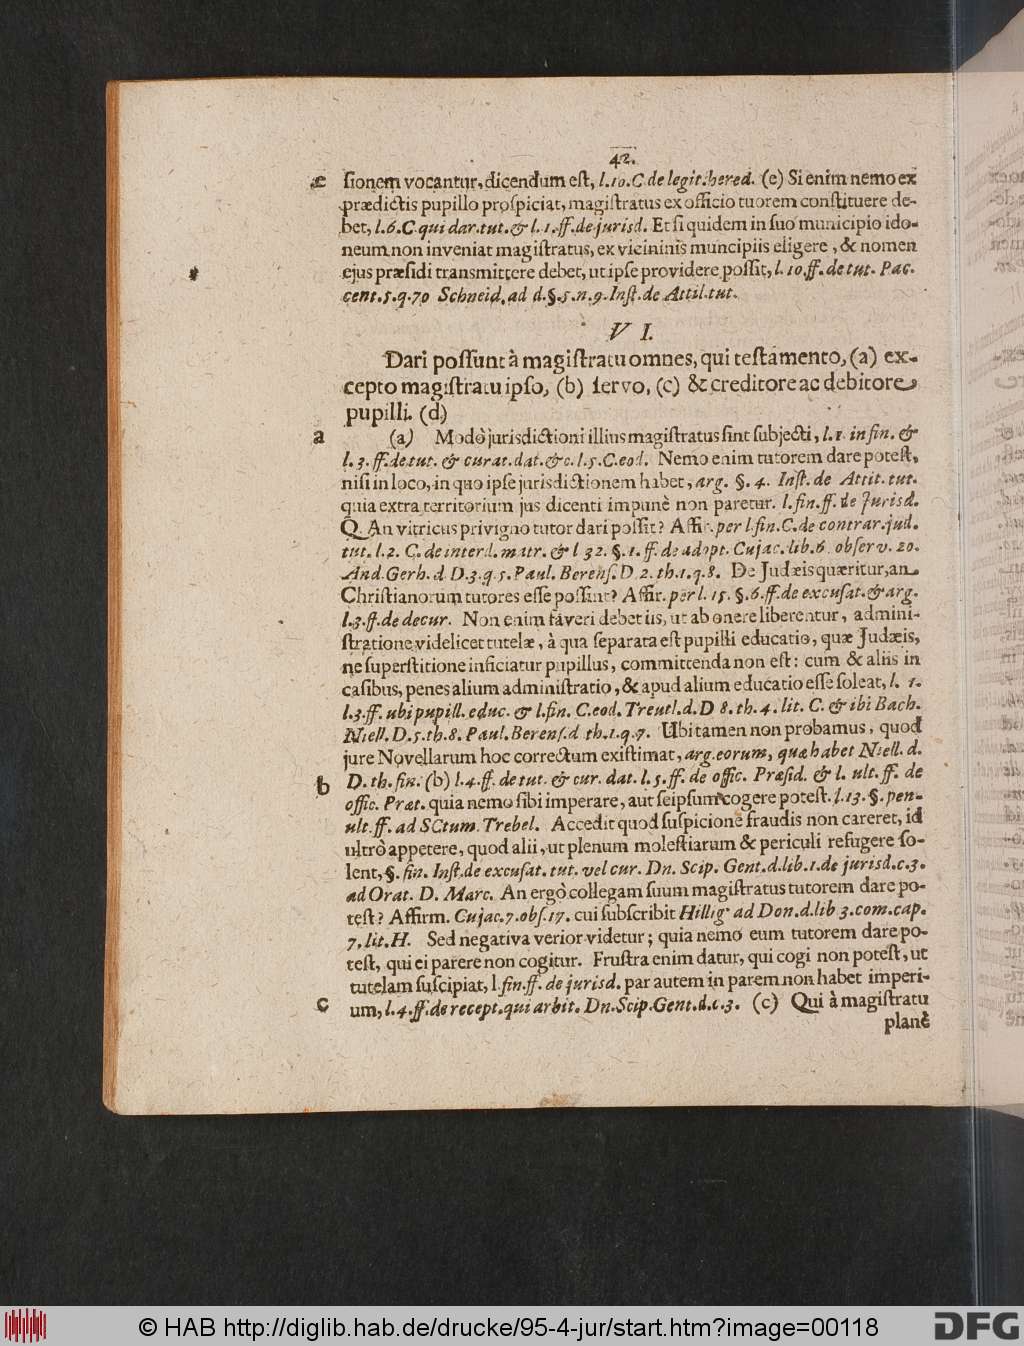 42.
e ſionem vocantur, dicendum eſt, l. 10. C. de legit. hered. (e) Si enim nemo ex
prædictis pupillo proſpiciat, magiſtratus ex officio tuorem conſtituere de-
bet, l. 6. C. qui dar. tut. & l. 1. ff. de jurisd. Et ſi quidem in ſuo municipio ido-
neum non inveniat magiſtratus, ex vicininis muncipiis eligere, & nomen
ejus præſidi transmittere debet, ut ipſe providere poſſit, l. 10. ff. de tut. Pac.
cent. 5. q. 70 Schneid. ad d. §. 5. n. 9. Inſt. de Attil. tut.
VI.
Dari poſſunt à magiſtratu omnes, qui teſtamento, (a) ex-
cepto magiſtratu ipſo, (b) ſervo, (c) & creditore ac debitore
pupilli. (d)
a (a) Modò jurisdictioni illius magiſtratus ſint ſubjecti, l. 1. in fin. &
l. 3. ff. de tut. & curat. dat. & c. l. 5. C. eod. Nemo enim tutorem dare poteſt,
niſi in loco, in quo ipſe jurisdictionem habet, arg. §. 4. Inſt. de Attit. tut.
quia extra territorium jus dicenti impunè non paretur. l. fin. ff. de Jurisd.
Q. An vitricus privigno tutor dari poſſit? Affir. per l. fin. C. de contrar. jud.
tut. l. 2. C. de interd. matr. & l 32. §. 1. ff. de adopt. Cujac. lib. 6. obſerv. 20.
And. Gerh. d. D. 3. q. 5. Paul. Berenſ. D. 2. th. 1. q. 8. De Judæis quæritur, an
Chriſtianorum tutores eſſe poſſint? Affir. per l. 15. §. 6. ff. de excuſat. & arg.
l. 3. ff. de decur. Non enim faveri debet iis, ut ab onere liberentur, admini-
ſtratione videlicet tutelæ, à qua ſeparata eſt pupilli educatio, quæ Judæis,
ne ſuperſtitione inficiatur pupillus, committenda non eſt: cum & aliis in
caſibus, penes alium adminiſtratio, & apud alium educatio eſſe ſoleat, l. 1.
l. 3. ff. ubi pupill. educ. & l. fin. C. eod. Treutl. d. D 8. th. 4. lit. C. & ibi Bach.
Niell. D. 5. th. 8. Paul. Berenſ. d. th. 1. q. 7. Ubi tamen non probamus, quod
jure Novellarum hoc correctum exiſtimat, arg. eorum, quæ habet Niell. d.
b D. th. fin. (b) l. 4. ff. de tut. & cur. dat. l. 5. ff. de offic. Præſid. & l. ult. ff. de
offic. Præt. quia nemo ſibi imperare, aut ſeipſum cogere poteſt. l. 13. §. pen-
ult. ff. ad SCtum. Trebel. Accedit quod ſuſpicione fraudis non careret, id
ultrò appetere, quod alii, ut plenum moleſtiarum & periculi refugere ſo-
lent, §. fin. Inſt. de excuſat. tut. vel cur. Dn. Scip. Gent. d. lib. 1. de jurisd. c. 3.
ad Orat. D. Marc. An ergò collegam ſuum magiſtratus tutorem dare po-
teſt? Affirm. Cujac. 7. obſ. 17. cui ſubſcribit Hillig ad Don. d. lib 3. com. cap.
7, lit. H. Sed negativa verior videtur; quia nemo eum tutorem dare po-
teſt, qui ei parere non cogitur. Fruſtra enim datur, qui cogi non poteſt, ut
tutelam ſuſcipiat, l. fin. ff. de jurisd. par autem in parem non habet imperi-
c um, l. 4. ff. de recept. qui arbit. Dn. Scip. Gent. d. c. 3. (c) Qui à magiſtratu
planè
© HAB http://diglib.hab.de/drucke/95-4-jur/start.htm?image=00118
DFG